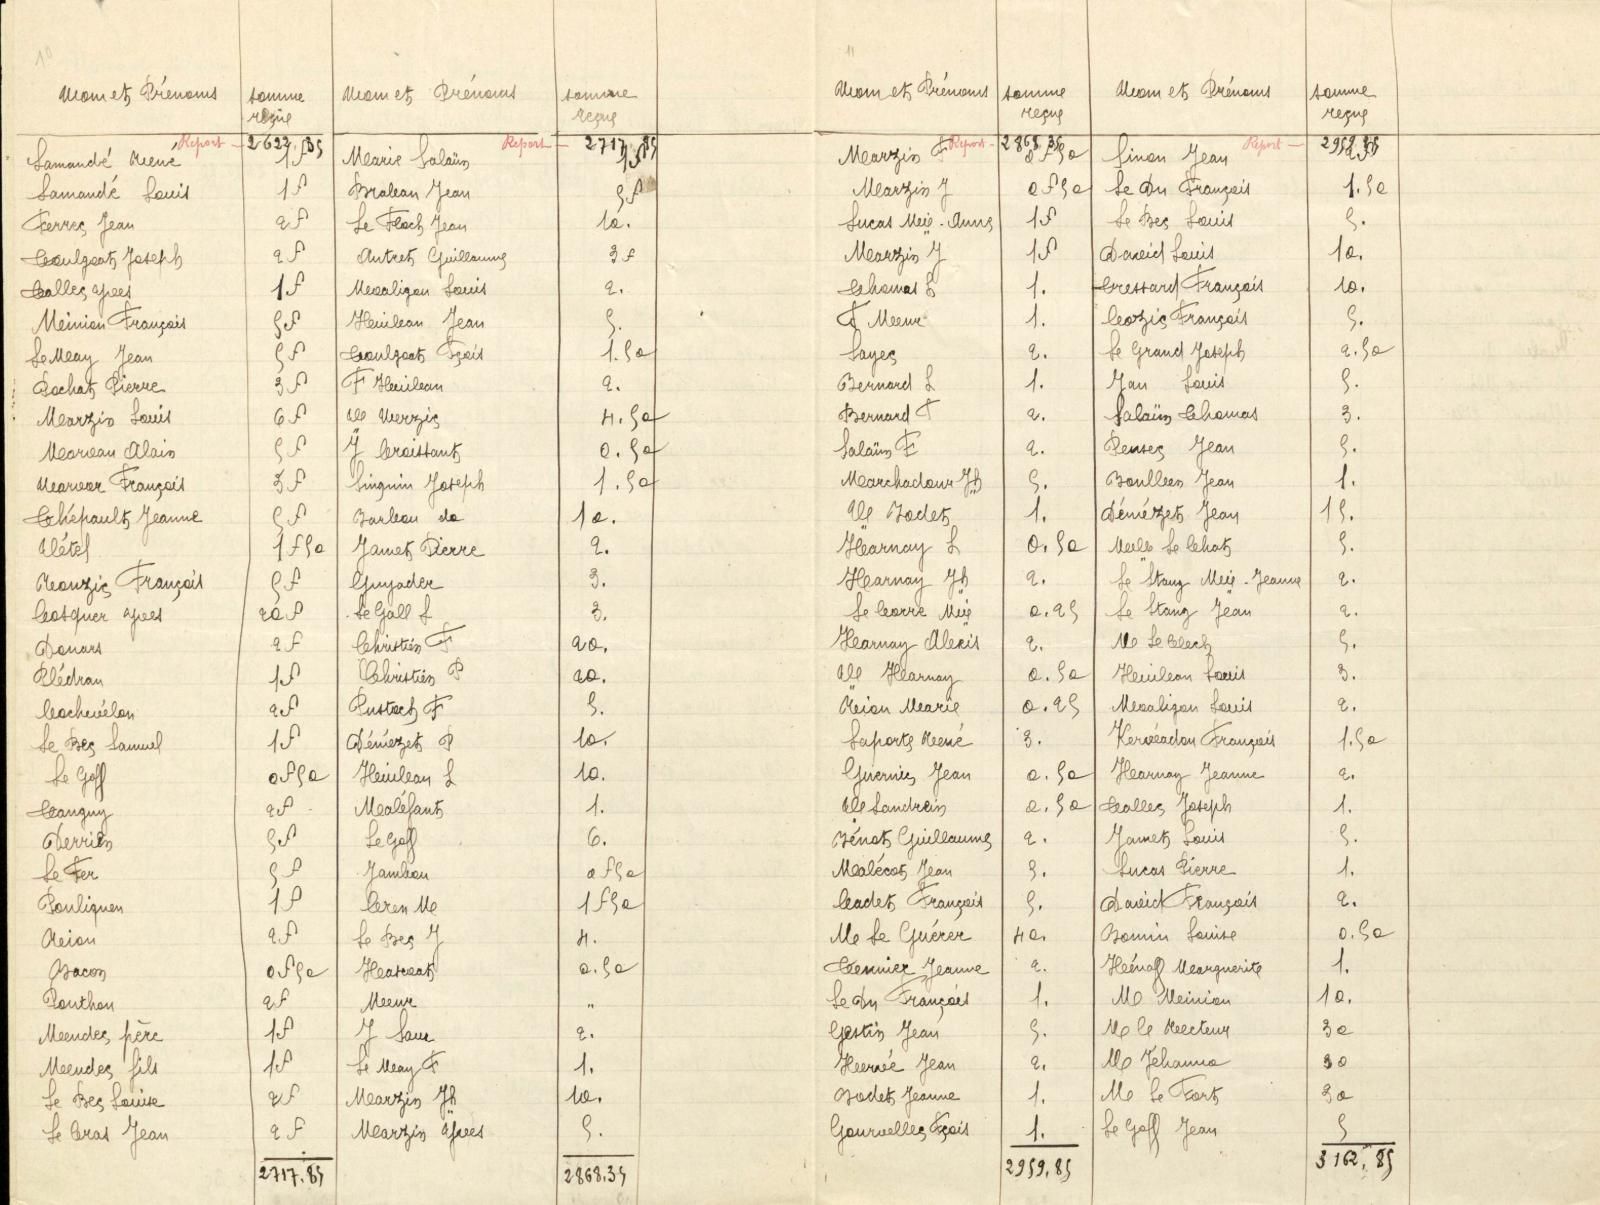 10
Nom et Prénoms somme reçue Nom et Prénoms somme reçue
Report — 2622,35 Report — 2717,85
Lamandé René 1f Marie Salaün 1f
Lamandé Louis 1f Bralean Jean 5f
Ferrec Jean 2f Le Floch Jean 10.
Coulgoat Joseph 2f Autret Guillaume 3f
Callec Yves 1f Maaligon Louis 2.
Meinion François 5f Heuilean Jean 5.
Le May Jean 5f Coulgoat Fçois 1.50
Pochat Pierre 3f F Heuilean 2.
Marzin Louis 6f M Merzic 4.50
Marean Alain 5f J Croissant 0.50
Marear François 3f Singuin Joseph 1.50
Chépault Jeanne 5f Barleau do 10.
Métef 1f50 Jamet Pierre 2.
Ronzic François 5f Guyader 3.
Cosquer Yves 20f Le Gall L 3.
Donars 2f Christien F 20.
Plédran 1f Christien P 20.
Cochevélon 2f Pustoch F 5.
Le Bec Samuel 1f Démézet P 10.
Le Goff 0f50 Heuilean L 10.
Canguy 2f Maléfant 1.
Derrien 5f Le Goff 6.
Le Fer 5f Jambon 0f50
Pouliquen 1f Cren M 1f50
Rion 2f Le Bec J 4.
Bacon 0f50 Hascoat 0.50
Ponthon 2f Meur "
Mendes père 1f J Saux 2.
Mendes fils 1f Le May F 1.
Le Bec Louise 2f Marzin Jh 10.
Le Cras Jean 2f Marzin Yves 5.
2717.85 2868.35
11
Nom et Prénoms somme reçue Nom et Prénoms somme reçue
Report - 2868,35 Report — 2959.85
Marzin F 0f50 Sinon Jean 2f
Marzin J 0f50 Le Du François 1.50
Lucas Mie-Anne 1f Le Bec Louis 5.
Marzin J 1f David Louis 10.
Thomas L 1. Cressard François 10.
F Meur 1. Cozic François 5.
Layec 2. Le Grand Joseph 2.50
Bernard L 1. Jan Louis 5.
Bernard F 2. Salaün Thomas 3.
Salaün F 2. Pensec Jean 5.
Marchadour Jh 5. Boullen Jean 1.
M Bodet 1. Démézet Jean 15.
Hearnay L 0.50 Melle Le Chat 5.
Hearnay Jh 2. Le Stang Mie-Jeanne 2.
Le Corre Mie 0.25 Le Stang Jean 2.
Hearnay Alexis 2. M Le Clech 5.
M Hearnay 0.50 Heuilean Louis 3.
Rion Marie 0.25 Maaligon Louis 2.
Laporte René 3. Kervéadou François 1.50
Guernic Jean 0.50 Hearnay Jeanne 2.
M Landrein 0.50 Callec Joseph 1.
Bénot Guillaume 2. Jamet Louis 5.
Malécot Jean 5. Lucas Pierre 1.
Cadet François 5. David François 2.
M Le Guérer 40. Bomin Louise 0.50
Cennier Jeanne 2. Hénaff Marguerite 1.
Le Du François 1. M Meinion 10.
Gestin Jean 5. M le Recteur 30
Hervé Jean 2. M Jéhanno 30
Bodet Jeanne 1. M Le Fort 30
Gourvellec Fçois 1. Le Goff Jean 5
2959.85 3162.85